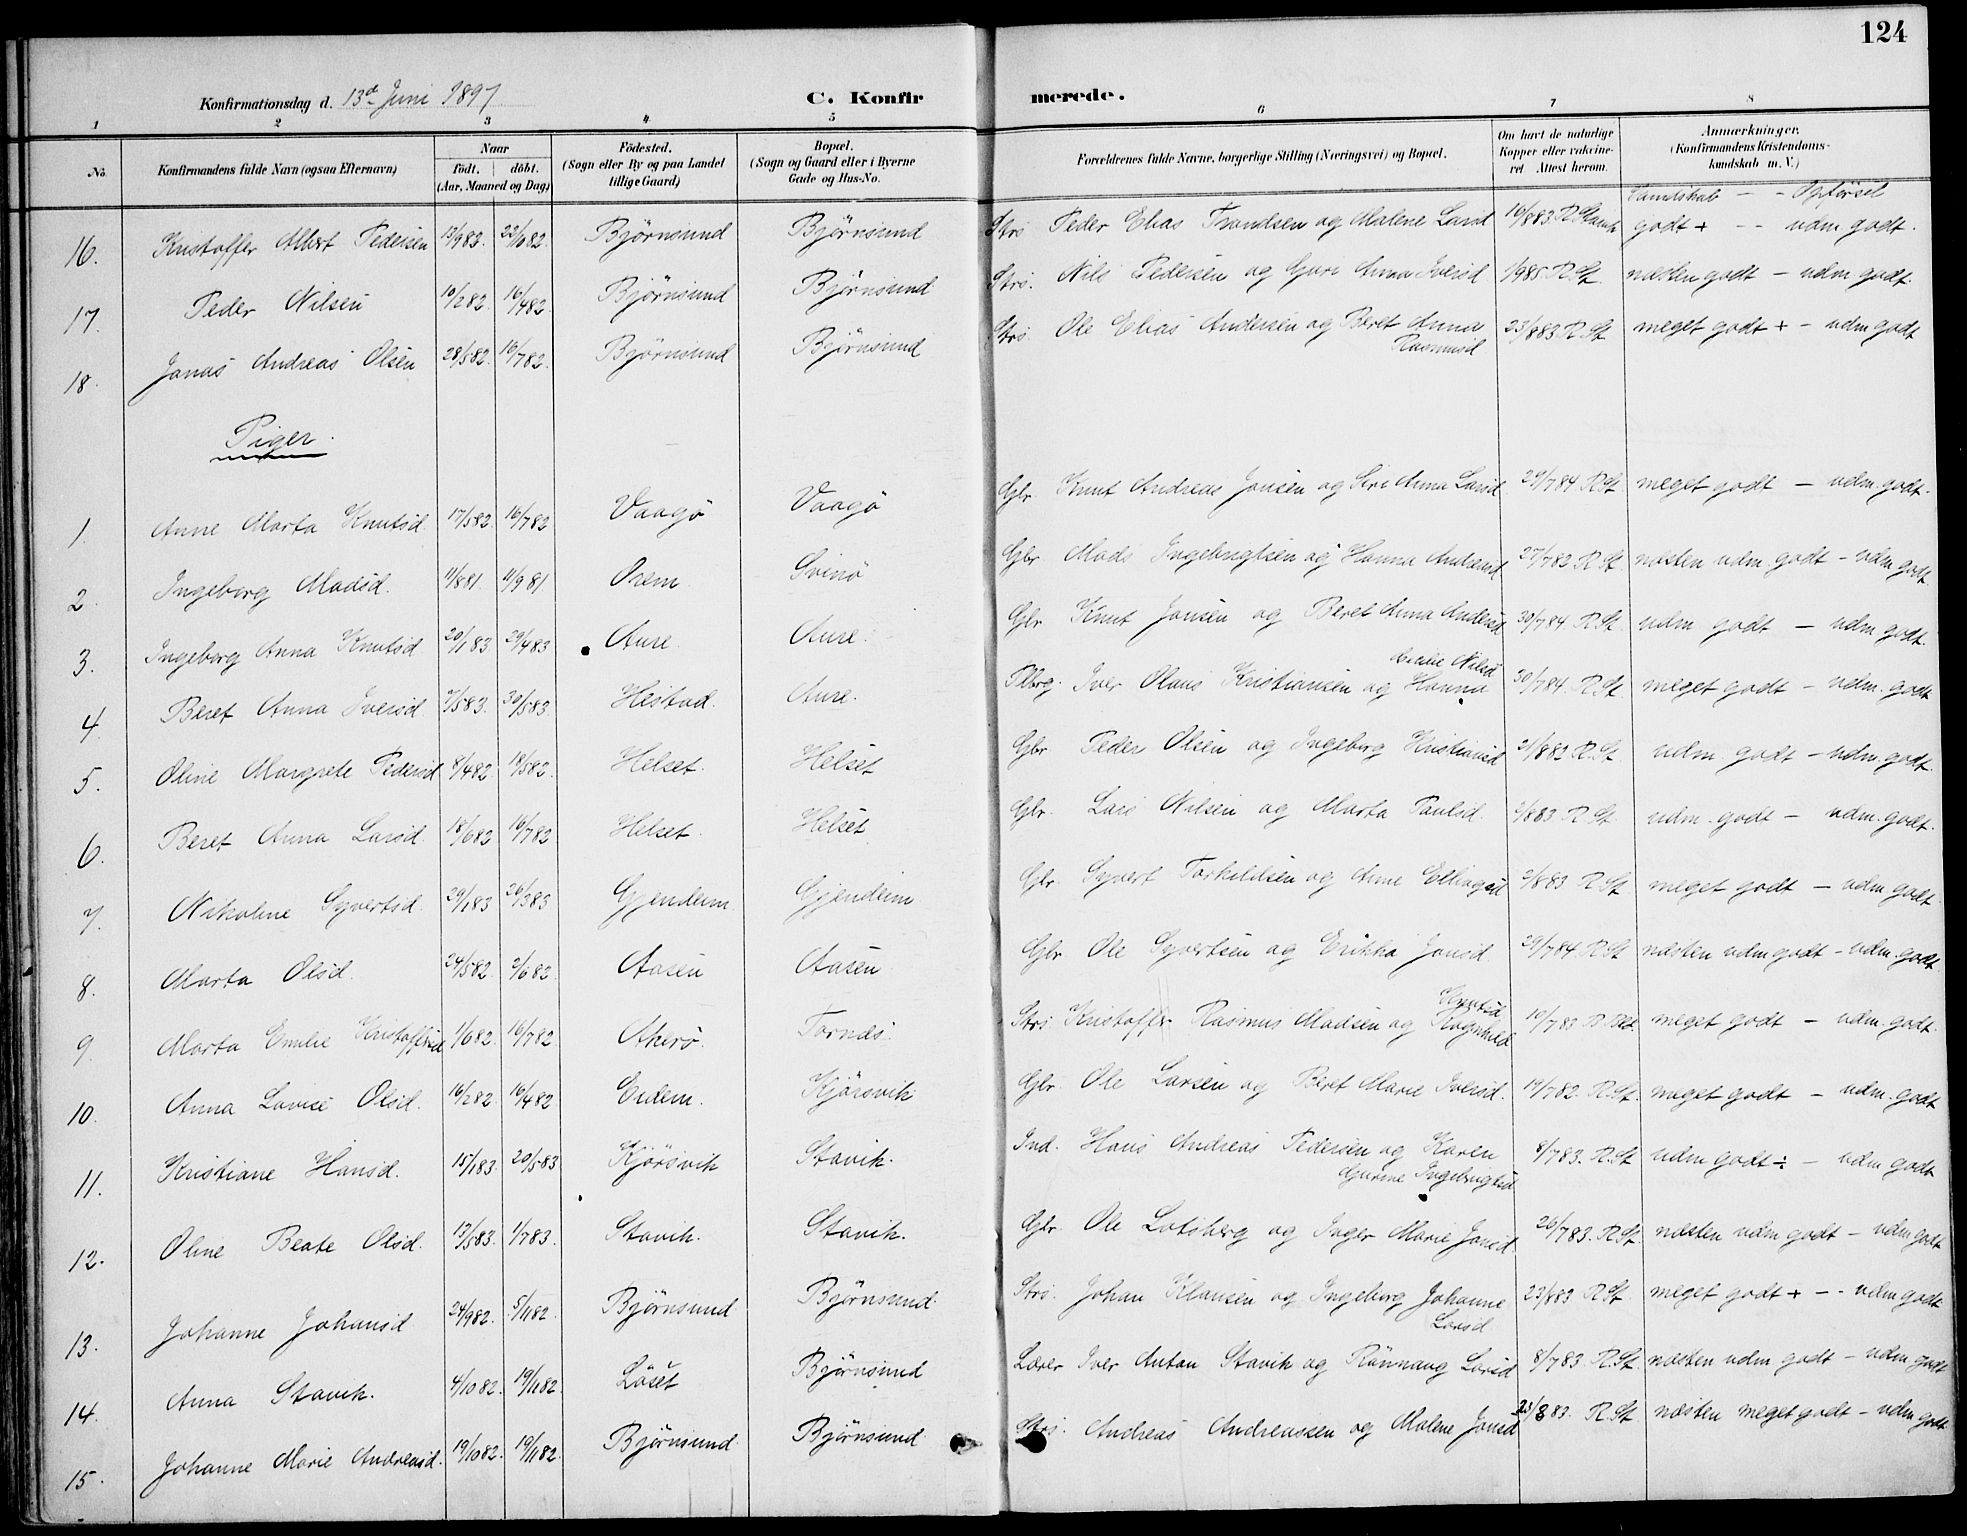 124
Konfirmationsdag d. 13de Juni 1897. C. Konfirmerede.
1 2 3 4 5 6 7 8
No. Konfirmandens fulde Navn (ogsaa Efternavn) Naar födt. döbt. (Aar, Maaned og Dag) Födested. (Sogn eller By og paa Landet tillige Gaard) Bopæl. (Sogn og Gaard eller i Byerne Gade og Hus-No. Forældrenes fulde Navne, borgerlige Stilling (Næringsvei) og Bopæl. Om havt de naturlige Kopper eller vakcineret Attest herom. Anmærkninger. (Konfirmandens Kristendomskundskab m. V.)
Kundskab - - Opførsel
16. Kristoffer Albert Pedersen 13/9 82. 22/10 82. Bjørnsund Bjørnsund Strs Peder Elias Trondsen og Malene Larsd 16/8 83 R. godt + - - udm godt.
17. Peder Nilsen 10/2 82 16/4 82 Bjørnsund Bjørnsund Strs. Nils Pedersen og Guri Anna Iversd 1/9 85. R. St. næsten godt - udm. godt.
18. Jonas Andreas Olsen 28/5 82. 16/7 82. Bjørnsund Bjørnsund Strs. Ole Elias Andersen og Beret Anna Rasmusd 23/8 83 R. St. meget godt + - udm godt
Piger.
1. Anne Marta Knutsd 17/5 82. 16/7 82 Vaagø Vaagø Gbr. Knut Andreas Jonsen og Siri Anna Larsd 29/7 84 R. St meget godt - udm. godt.
2. Ingeborg Madsd. 11/8 81. 11/9 81 Orem Svinø Gbr Mads Ingebrigtsen og Hanna Andersd 27/7 82. R. St. næsten udm. godt - udm godt.
3. Ingeborg Anna Knutsd 20/1 83 29/4 83 Aure. Aure. Gbr Knut Jonsen og Beret Anna Andersd 30/7 84. R. St. udm godt - udm godt.
4. Beret Anna Iversd. 7/5 83. 30/5 83. Hestad. Aure. Plbrg. Iver Olaus Kristiansen og Hanna Nilsd 30/7 84. R. St. meget godt - udm. godt
5. Oline Margrete Pedersd 8/4 82. 18/5 82. Helset. Helset Gbr Peder Olsen og Ingeborg Kristiansd 21/8 82 R. St. udm. godt - udm. godt.
6. Beret Anna Larsd. 18/6 82 16/7 82 Helset. Helset Gbr. Lars Nilsen og Marta Paulsd. 2/8 83 R. St. udm. godt - udm. godt.
7. Nikoline Syvertsd. 29/1 83 26/3 83 Gjendem. Gjendem Gbr. Syvert Torkildsen og Anne Ellingsd 2/8 83 R. St meget godt - udm. godt.
8. Marta Olsd. 24/5 82. 2/6 82. Aasen Aasen Gbr Ole Syvertsen og Erikka Jonsd. 29/7 84. R. St næsten udm godt - udm. godt
9. Marta Emilie Kristoffersd 1/6 82. 16/7 82. Akerø. Tornes. Strs. Kristoffer Rasmus Madsen og Ragnhild Knutsd 10/7 83 meget godt - udm. godt.
10. Anna Lovise Olsd. 16/2 82. 16/4 82 Eidem. Kjørsvik Gbr Ole Larsen og Beret Marie Iversd. 19/7 82. R. St. meget godt - udm. godt
11. Kristiane Hansd. 15/1 83. 20/5 83 Kjørsvik Stavik. Ind. Hans Andreas Pedersen og Karen Gurine Ingebrigtsd 8/7 83. R. St udm godt ÷ - udm godt
12. Oline Beate Olsd. 13/5 83. 1/7 83. Stavik. Stavik. Gbr. Ole Lotsberg og Inger Marie Jonsd 26/7 83. R. St. næsten udm godt - udm godt
13. Johanne Johansd. 24/9 82. 5/11 82. Bjørnsund Bjørnsund. Strs. Johan Klausen og Ingeborg Johanne Larsd. 23/8 83 R. St. meget godt + - - udm godt
14. Anna Stavik. 4/10 82. 19/11 82. Løset Bjørnsund Lærer Iver Anton Stavik og Rønnaug Larsd 8/7 83. R. St. næsten udm. godt - udm. godt
15. Johanne Marie Andreasd. 19/10 82. 19/11 82. Bjørnsund Bjørnsund Strs. Andreas Andreassen og Malene Jonsd 23/8 83. R. St. næsten meget godt - udm. godt